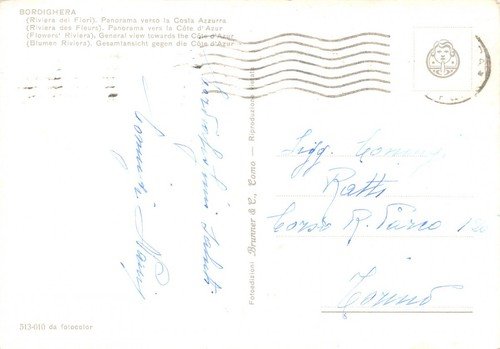 BORDIGHERA
(Riviera dei Fiori). Panorama verso la Costa Azzurra
(Riviera des Fleurs). Panorama vers la Côte d'Azur
(Flowers' Riviera). General view towards the Côte d'Azur
(Blumen Riviera). Gesamtansicht gegen die Côte d'Azur
Cordialissimi saluti
Fotoedizioni Brunner & C., Como — Riproduzione
Sigg.
Ratti
Corso R. Parco
Torino
513-010 da fotocolor